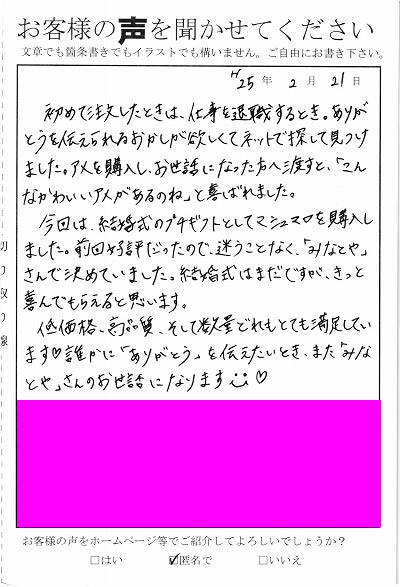 お客様の声を聞かせてください
文章でも箇条書きでもイラストでも構いません。ご自由にお書き下さい。
H25年 2月 21日
初めて注文したときは、仕事を退職するとき。ありが
とうを伝えられるおかしが欲しくてネットで探して見つけ
ました。アメを購入し、お世話になった方へ渡すと、「こん
なかわいいアメがあるのね」と喜ばれました。
今回は、結婚式のプチギフトとしてマシュマロを購入し
ました。前回好評だったので、迷うことなく、「みなとや」
さんで決めていました。結婚式はまだですが、きっと
喜んでもらえると思います。
低価格、高品質、そして数量どれもとても満足してい
ます♡誰かに「ありがとう」を伝えたいとき、また「みな
とや」さんのお世話になります♡
切り取り線
お客様の声をホームページ等でご紹介してよろしいでしょうか？
□はい ☑匿名で □いいえ